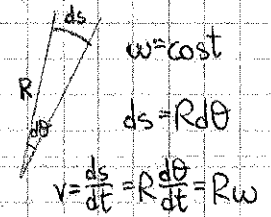 ds
R
dθ
ω=cost
ds=Rdθ
v=ds/dt=R dθ/dt=Rω